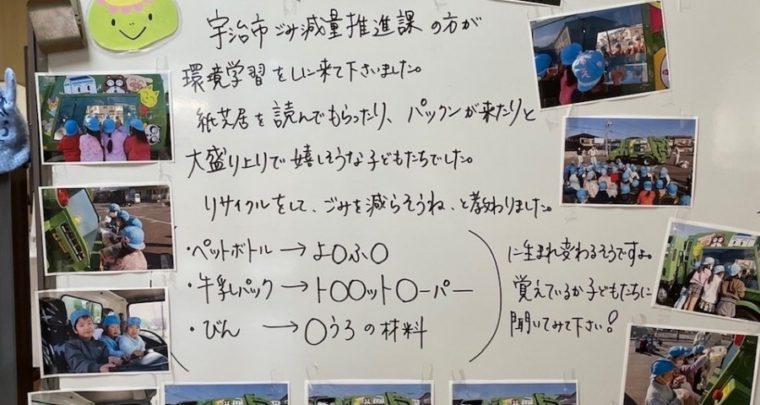 宇治市 ごみ減量推進課 の方が
環境学習をしに来て下さいました。
紙芝居を読んでもらったり、パックンが来たりと
大盛り上りで嬉しそうな子どもたちでした。
リサイクルをして、ごみを減らそうね、と教わりました。
・ペットボトル→よ〇ふ〇
・牛乳パック→ト〇〇ット〇ーパー
・びん →〇うろの材料
に生まれ変わるそうですよ。
覚えているか子どもたちに
聞いてみて下さい!